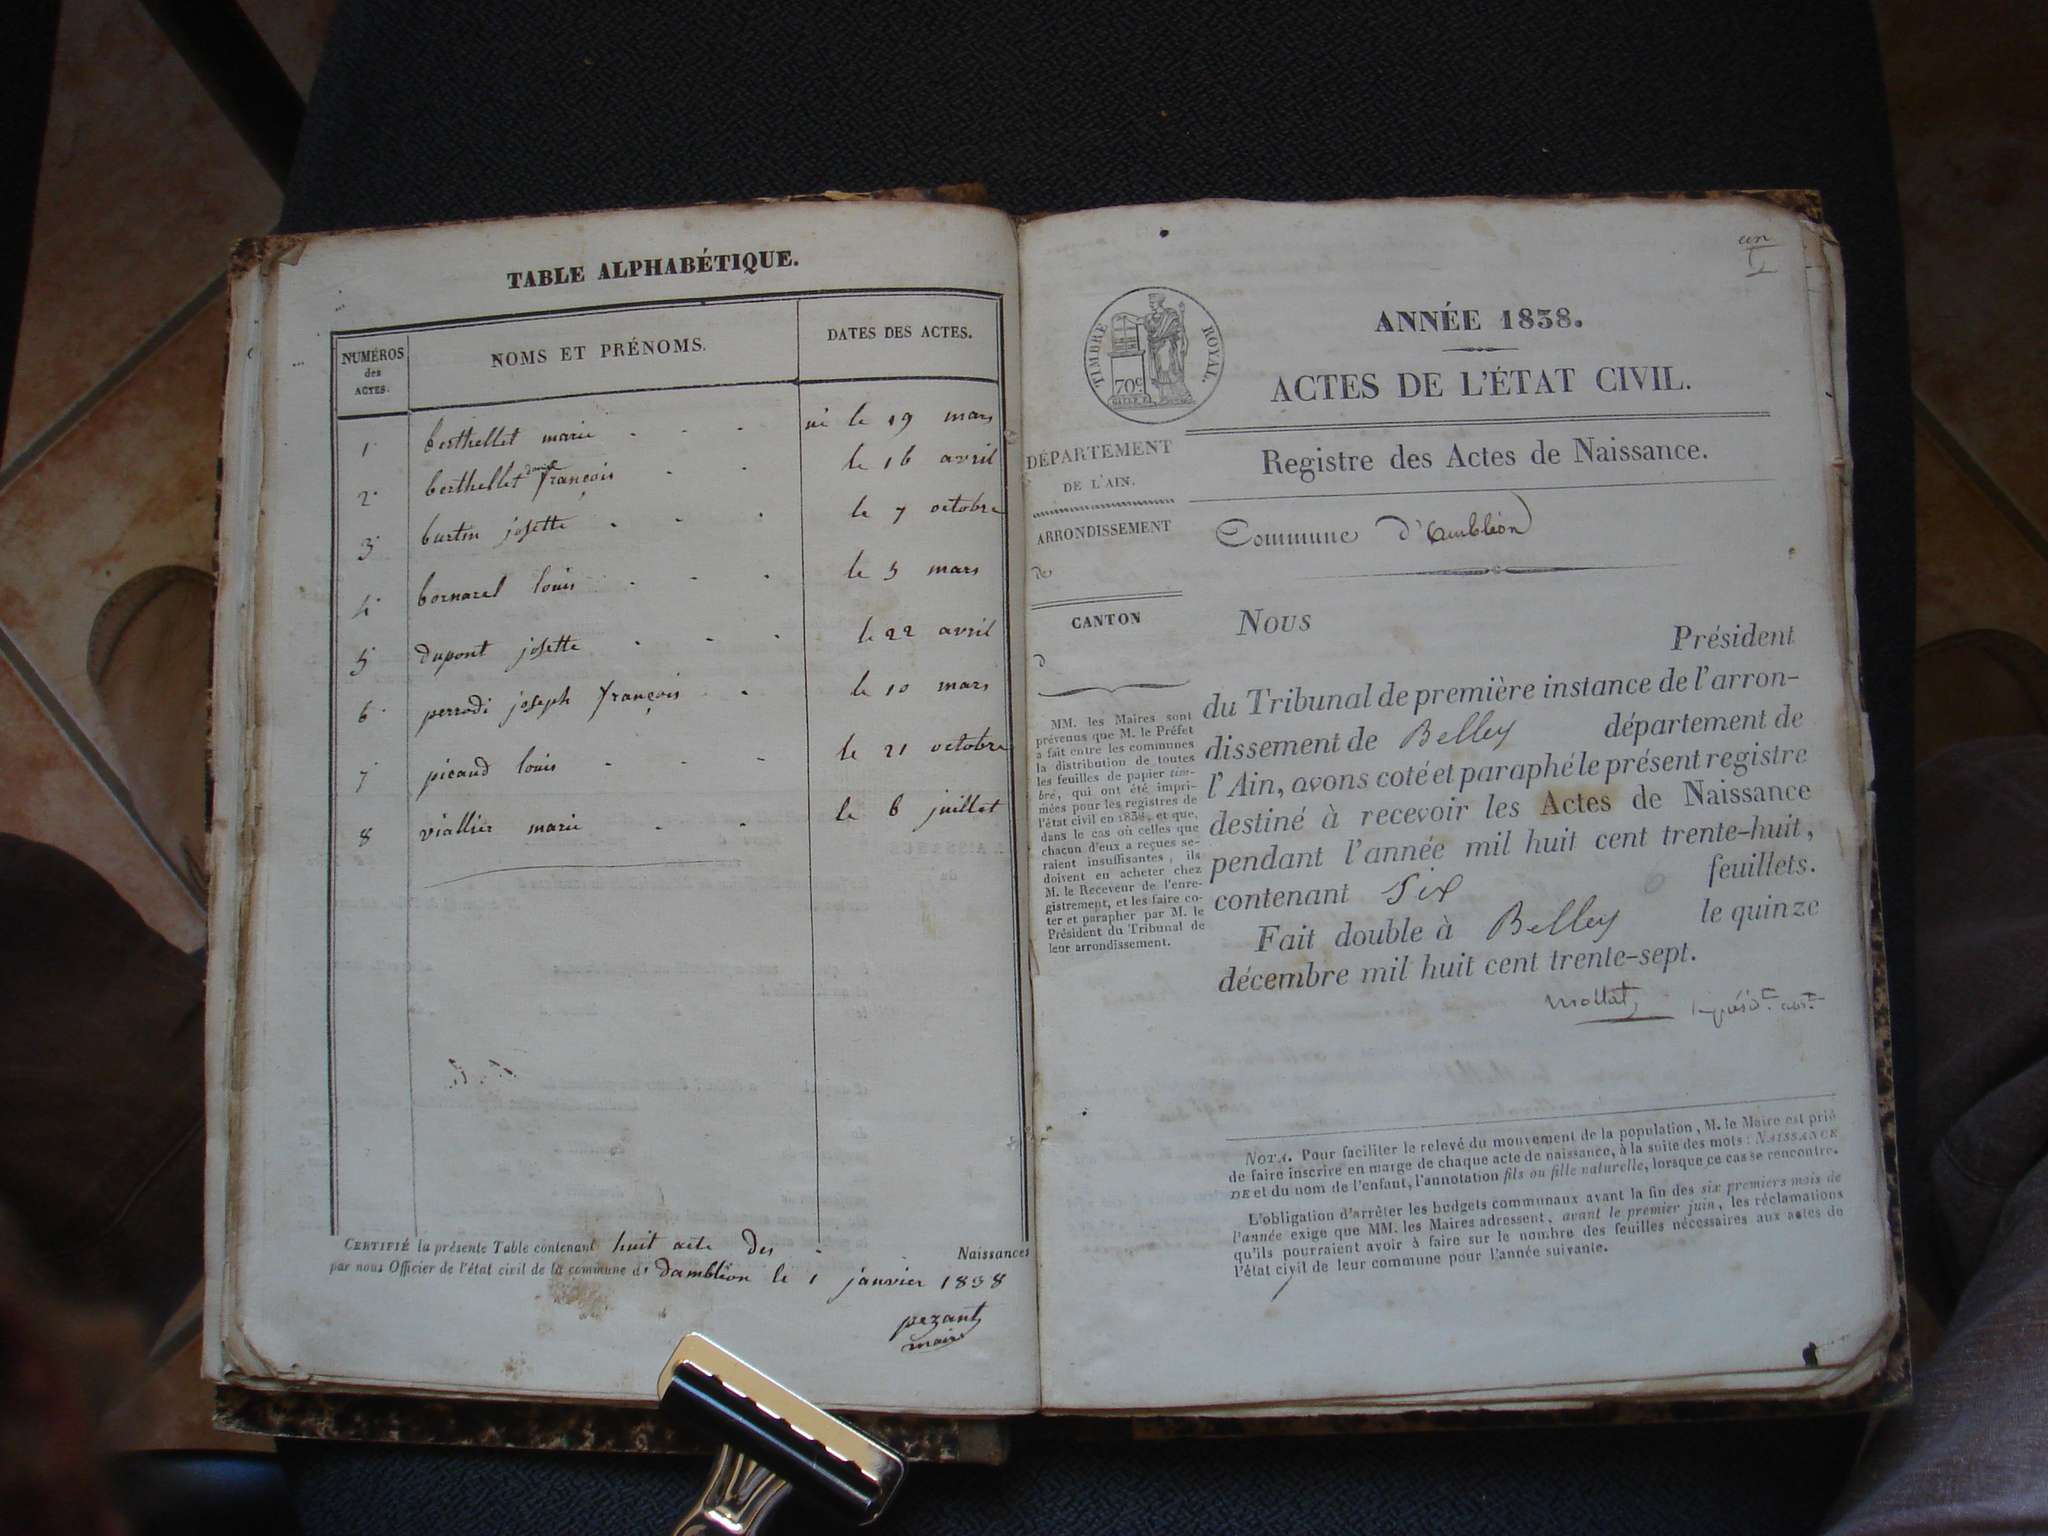 TABLE ALPHABÉTIQUE.
NUMÉROS des ACTES. NOMS ET PRÉNOMS. DATES DES ACTES.
1 berthellet marie né le 19 mars
2 berthellet françois le 16 avril
3 burtin josette le 7 octobre
4 bornarel louis le 5 mars
5 dupont josette le 22 avril
6 perrodi joseph françois le 10 mars
7 picaud louis le 21 octobre
8 viallier marie le 6 juillet
CERTIFIÉ la présente Table contenant huit acte des Naissances
par nous Officier de l'état civil de la commune d damblion le 1 janvier 1838
pezant
maire
un
TIMBRE ROYAL.
70c
ANNÉE 1838.
ACTES DE L'ÉTAT CIVIL.
DÉPARTEMENT
DE L'AIN.
ARRONDISSEMENT
de
CANTON
d
MM. les Maires sont
prévenus que M. le Préfet
a fait entre les communes
la distribution de toutes
les feuilles de papier tim-
bré, qui ont été impri-
mées pour les registres de
l'état civil en 1838, et que,
dans le cas où celles que
chacun d'eux a reçues se-
raient insuffisantes, ils
doivent en acheter chez
M. le Receveur de l'enre-
gistrement, et les faire co-
ter et parapher par M. le
Président du Tribunal de
leur arrondissement.
Registre des Actes de Naissance.
Commune d'Ambléon
Nous
Président
du Tribunal de première instance de l'arron-
dissement de Belley département de
l'Ain, avons coté et paraphé le présent registre
destiné à recevoir les Actes de Naissance
pendant l'année mil huit cent trente-huit,
contenant Six feuillets.
Fait double à Belley le quinze
décembre mil huit cent trente-sept.
NOTA. Pour faciliter le relevé du mouvement de la population, M. le Maire est prié
de faire inscrire en marge de chaque acte de naissance, à la suite des mots : NAISSANCE
DE et du nom de l'enfant, l'annotation fils ou fille naturelle, lorsque ce cas se rencontre.
L'obligation d'arrêter les budgets communaux avant la fin des six premiers mois de
l'année exige que MM. les Maires adressent, avant le premier juin, les réclamations
qu'ils pourraient avoir à faire sur le nombre des feuilles nécessaires aux actes de
l'état civil de leur commune pour l'année suivante.